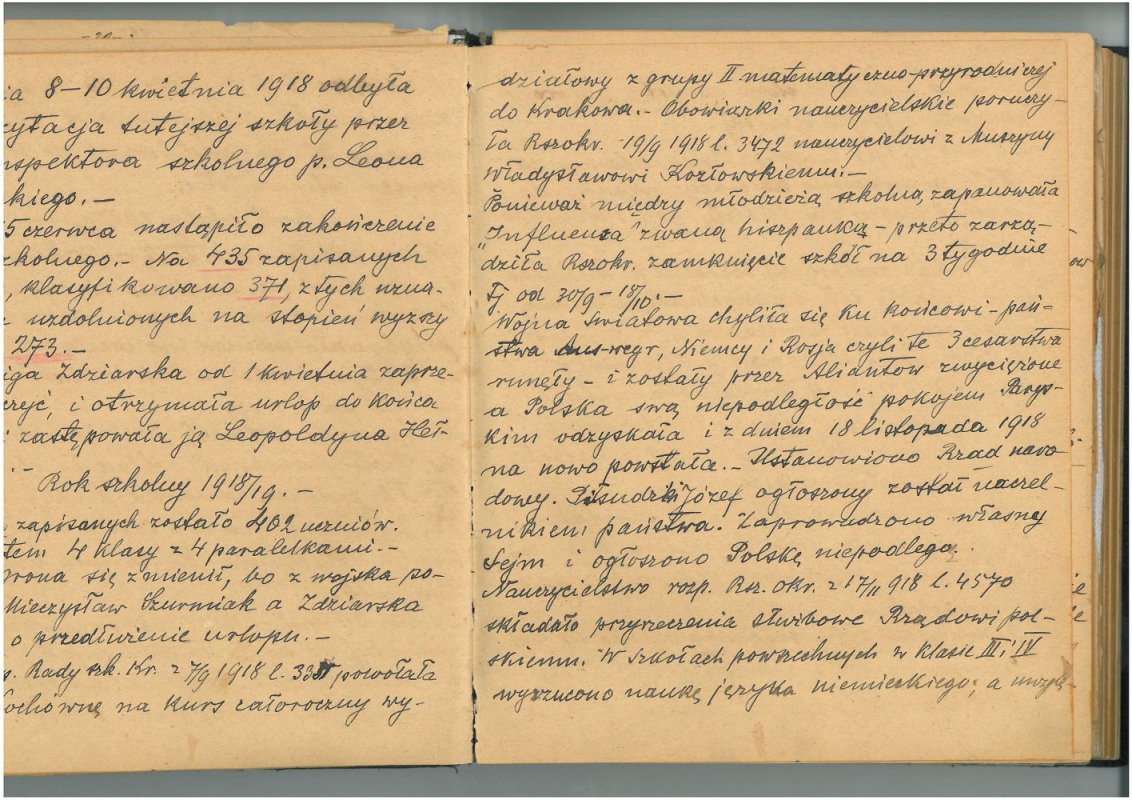 ia 8–10 kwietnia 1918 odbyła
zytacja tutejszej szkoły przez
nspektora szkolnego p. Leona
kiego. –
5 czerwca nastąpiło zakończenie
zkolnego. – Na 435 zapisanych
, klasyfikowano 371, z tych uzna-
uzdolnionych na stopień wyższy
273. –
iga Zdziarska od 1 kwietnia zaprze-
czyć, i otrzymała urlop do końca
zastępowała ją Leopoldyna Heł-
. –
Rok szkolny 1918/19. –
zapisanych zostało 402 uczniów.
tem 4 klasy z 4 paralelkami. –
rona się zmienił, bo z wojska po-
Mieczysław Szurmiak a Zdziarska
o przedłużenie urlopu. –
. Rady szk. Kr. z 7/9 1918 l. powołała
ochównę na kurs całoroczny wy-
działowy z grupy II matematyczno-przyrodniczej
do Krakowa. – Obowiązki nauczycielskie poruczy-
ła Rszokr. 19/9 1918 l. 3472 nauczycielowi z Muszyny
Władysławowi Kozłowskiemu. –
Ponieważ między młodzieżą szkolną zapanowała
„Influenza" zwaną hiszpanką – przeto zarzą-
dziła Rszokr. zamknięcie szkół na 3 tygodnie
Tj od 30/9 – 18/10. –
Wojna Światowa chyliła się ku końcowi – pań-
stwa Aus-węgr, Niemcy i Rosja czyli te 3 cesarstwa
runęły – i zostały przez Aliantów zwyciężone
a Polska swą niepodległość pokojem Parys-
kim odzyskała i z dniem 18 listopada 1918
na nowo powstała. – Ustanowiono Rząd naro-
dowy. Piłsudzki Józef ogłoszony został naczel-
nikiem państwa. Zaprowadzono własny
Sejm i ogłoszono Polskę niepodległą.
Nauczycielstwo rozp. Rsz. okr. z 17/11 918 l. 4570
składało przyrzeczenia służbowe Rządowi pol-
skiemu. W szkołach powszechnych w klasie III i IV
wyrzucono naukę języka niemieckiego; a